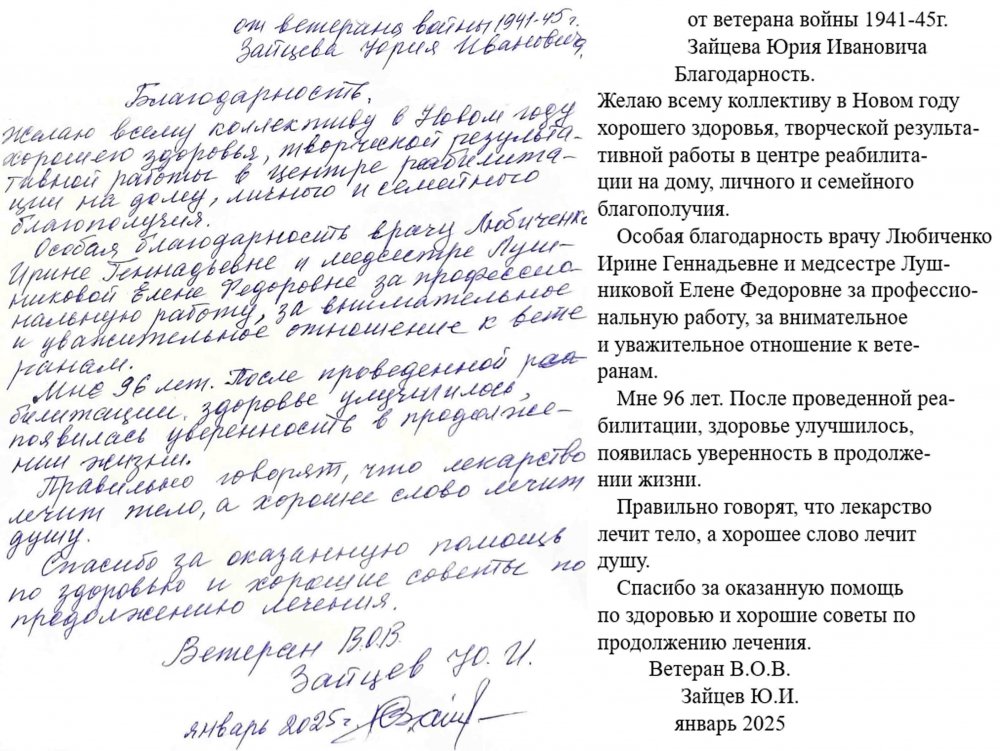 от ветерана войны 1941-45г.
Зайцева Юрия Ивановича
Благодарность.
Желаю всему коллективу в Новом году
хорошего здоровья, творческой результа-
тивной работы в центре реабилита-
ции на дому, личного и семейного
благополучия.
Особая благодарность врачу Любиченко
Ирине Геннадьевне и медсестре Луш-
никовой Елене Федоровне за профессио-
нальную работу, за внимательное
и уважительное отношение к вете
ранам.
Мне 96 лет. После проведенной реа-
билитации здоровье улучшилось,
появилась уверенность в продолже-
нии жизни.
Правильно говорят, что лекарство
лечит тело, а хорошее слово лечит
душу.
Спасибо за оказанную помощь
по здоровью и хорошие советы по
продолжению лечения.
Ветеран В.О.В.
Зайцев Ю.И.
январь 2025г.
от ветерана войны 1941-45г.
Зайцева Юрия Ивановича
Благодарность.
Желаю всему коллективу в Новом году
хорошего здоровья, творческой результа-
тивной работы в центре реабилита-
ции на дому, личного и семейного
благополучия.
Особая благодарность врачу Любиченко
Ирине Геннадьевне и медсестре Луш-
никовой Елене Федоровне за профессио-
нальную работу, за внимательное
и уважительное отношение к вете-
ранам.
Мне 96 лет. После проведенной реа-
билитации, здоровье улучшилось,
появилась уверенность в продолже-
нии жизни.
Правильно говорят, что лекарство
лечит тело, а хорошее слово лечит
душу.
Спасибо за оказанную помощь
по здоровью и хорошие советы по
продолжению лечения.
Ветеран В.О.В.
Зайцев Ю.И.
январь 2025